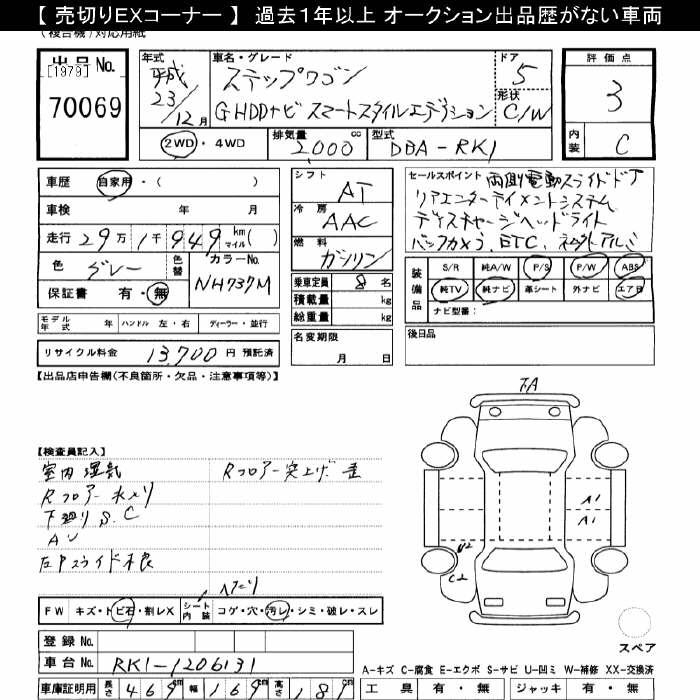 【 売切りEXコーナー 】 過去１年以上 オークション出品歴がない車両
(複合機)対応用紙
出品No.
[1979]
70069
年式 平成 23/12月
車名・グレード ステップワゴン
G HDDナビ スマートスタイルエディション
ドア 5
形状 C/W
評価点 3
内装 C
2WD・4WD
排気量 2000 cc
型式 DBA-RK1
車歴 自家用・( )
車検 年 月
走行 29万1千949 km マイル( )
色 グレー
色替
カラーNo. NH737M
保証書 有・無
モデル年式 年 ハンドル 左・右 ディーラー・並行
リサイクル料金 13,700 円 預託済
シフト AT
冷房 AAC
燃料 ガソリン
乗車定員 8 名
積載量 kg
総重量 kg
名変期限 月 日
セールスポイント 両側電動スライドドア
リアエンターテイメントシステム
ディスチャージヘッドライト
バックカメラ、ETC、スペアアルミ
装備品
S/R 純A/W P/S P/W ABS
純TV 純ナビ 革シート 外ナビ エアB
ナビ型番:
後日品
【出品店申告欄(不良箇所・欠品・注意事項等)】
【検査員記入】
室内 湿気
Rフロアー突上げ 歪
Rフロアー 水入り
下廻り S.C
AU
左Pスライド不良
下A
A1
A1
U2
C2
へたり
FW キズ・トビ石・割レX
シート内装 コゲ・穴・汚レ・シミ・破レ・スレ
登録No.
車台No. RK1-1206131
車庫証明用 長さ 469cm 幅 169cm 高さ 181cm
スペア
A-キズ C-腐食 E-エクボ S-サビ U-凹ミ W-補修 XX-交換済
工具 有・無 ジャッキ 有・無